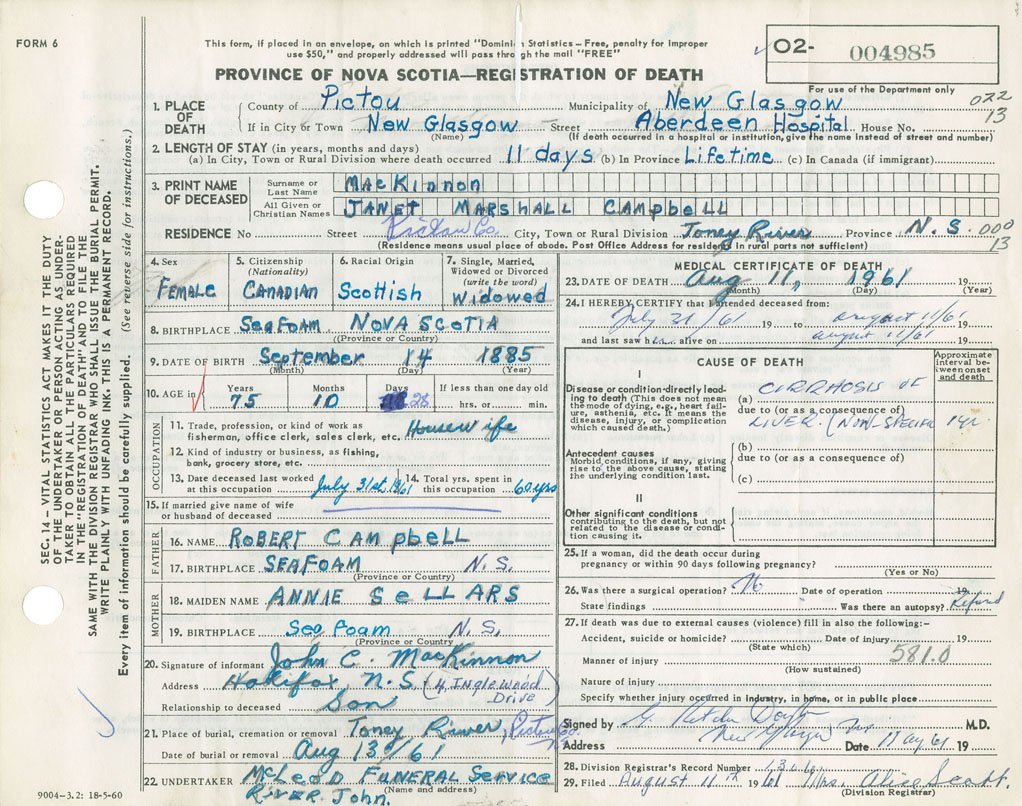 FORM 6
This form, if placed in an envelope, on which is printed "Dominion Statistics – Free, penalty for improper
use $50," and properly addressed will pass through the mail "FREE"
O2- 004985
For use of the Department only
PROVINCE OF NOVA SCOTIA—REGISTRATION OF DEATH
022
13
1. PLACE OF DEATH
County of Pictou Municipality of New Glasgow
If in City or Town New Glasgow Street Aberdeen Hospital House No.
(Name) (If death occurred in a hospital or institution, give the name instead of street and number)
2. LENGTH OF STAY (in years, months and days)
(a) In City, Town or Rural Division where death occurred 11 days (b) In Province Lifetime (c) In Canada (if immigrant)
3. PRINT NAME OF DECEASED
Surname or Last Name MacKinnon
All Given or Christian Names JANET MARSHALL CAMPbELL
RESIDENCE No Street Pictou Co. City, Town or Rural Division Toney River Province N.S. 000
13
(Residence means usual place of abode. Post Office Address for residents in rural parts not sufficient)
SEC. 14 – VITAL STATISTICS ACT MAKES IT THE DUTY
OF THE UNDERTAKER OR PERSON ACTING AS UNDER-
TAKER TO OBTAIN ALL THE PARTICULARS REQUIRED
IN THE "REGISTRATION OF DEATH" AND TO FILE THE
SAME WITH THE DIVISION REGISTRAR WHO SHALL ISSUE THE BURIAL PERMIT.
WRITE PLAINLY WITH UNFADING INK. THIS IS A PERMANENT RECORD.
Every item of information should be carefully supplied. (See reverse side for instructions.)
4. Sex FEMALE
5. Citizenship (Nationality) CANADIAN
6. Racial Origin Scottish
7. Single, Married, Widowed or Divorced (write the word) Widowed
8. BIRTHPLACE SeaFoam NOVA SCOTIA
(Province or Country)
9. DATE OF BIRTH September 14 1885
(Month) (Day) (Year)
10. AGE in Years 75 Months 10 Days 28 If less than one day old hrs. or min.
OCCUPATION
11. Trade, profession, or kind of work as
fisherman, office clerk, sales clerk, etc. Housewife
12. Kind of industry or business, as fishing,
bank, grocery store, etc.
13. Date deceased last worked at this occupation July 31st 1961
14. Total yrs. spent in this occupation 60 yrs
15. If married give name of wife
or husband of deceased
FATHER
16. NAME ROBERT CAMPbELL
17. BIRTHPLACE SEAFOAM N.S.
(Province or Country)
MOTHER
18. MAIDEN NAME ANNIE SeLLARS
19. BIRTHPLACE Sea foam N.S.
(Province or Country)
20. Signature of informant John C. MacKinnon
Address Halifax, N.S. (4 Inglewood Drive)
Relationship to deceased Son
21. Place of burial, cremation or removal Toney River, Pictou Co. N.S.
Date of burial or removal Aug 13/61
22. UNDERTAKER McLeod FUNERAL Service
(Name and address)
RIVER John.
9004-3.2: 18-5-60
MEDICAL CERTIFICATE OF DEATH
23. DATE OF DEATH Aug 11, 1961
(Month) (Day) (Year)
24. I HEREBY CERTIFY that I attended deceased from:
July 31/61 19 to august 11/61 19
and last saw her alive on august 11/61 19
CAUSE OF DEATH
Approximate interval between onset and death
I
Disease or condition directly lead-
ing to death (This does not mean
the mode of dying, e.g., heart fail-
ure, asthenia, etc. It means the
disease, injury, or complication
which caused death.)
(a) CIRRHOSIS OF
due to (or as a consequence of)
LIVER.
Antecedent causes
Morbid conditions, if any, giving
rise to the above cause, stating
the underlying condition last.
(b)
due to (or as a consequence of)
(c)
II
Other significant conditions
contributing to the death, but not
related to the disease or condi-
tion causing it.
25. If a woman, did the death occur during
pregnancy or within 90 days following pregnancy?
(Yes or No)
26. Was there a surgical operation? No Date of operation 19
State findings Was there an autopsy? Refused
27. If death was due to external causes (violence) fill in also the following:–
Accident, suicide or homicide? Date of injury 19
(State which)
581.0
Manner of injury
(How sustained)
Nature of injury
Specify whether injury occurred in industry, in home, or in public place
Signed by M.D.
Address New Glasgow N.S. Date 11 Aug 61 19
28. Division Registrar's Record Number
29. Filed August 11th 1961 Mrs. Alice Scott.
(Division Registrar)